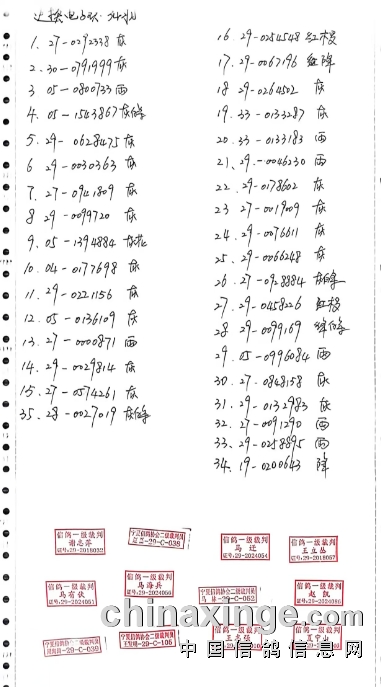 1. 27-0292338 灰
2. 30-0791999 灰
3 05-0800733 西
4. 05-1543867 灰白条
5. 29-0628475 灰
6 29-0030363 灰
7. 27-0941809 灰
8 29-0099720 灰
9. 05-1394884 灰花
10. 04-0177698 灰
11. 29-0221156 灰
12. 05-0136109 灰
13. 27-0000871 西
14. 29-0029814 灰
15. 27-0574261 灰
35. 28-0027019 灰白条
16 29-0254548 红楞
17. 29-0067196 红降
18 29-0264502 灰
19. 33-0133287 灰
20. 33-0133183 西
21. 29-0046230 西
22. 29-0178602 灰
23 27-0019009 灰
24. 29-0076611 灰
25. 29-0066248 灰
26. 27-0928884 灰白条
27. 29-0458226 红楞
28 29-0099169
29. 05-0996084 西
30. 27-0848158 灰
31. 29-0132983 灰
32. 27-0091290 西
33. 29-0258895 西
34. 19-0200643 降
信鸽一级裁判
谢志萍
证号:29-2018032
宁夏信鸽协会二级裁判员
-29-C-038
信鸽一级裁判
马迁
证号:29-2024054
信鸽一级裁判
王立丛
证号:29-2018067
信鸽一级裁判
马有伏
证号:29-2024051
信鸽一级裁判
马海兵
宁夏信鸽协会二级裁判员
-29-C-062
信鸽一级裁判
赵凯
证号:29-2024086
宁夏信鸽协会二级裁判员
-29-C-039
宁夏信鸽协会二级裁判员
-29-C-105
信鸽一级裁判
信鸽一级裁判
夏宁山
chinaxinge.com
中国信鸽信息网